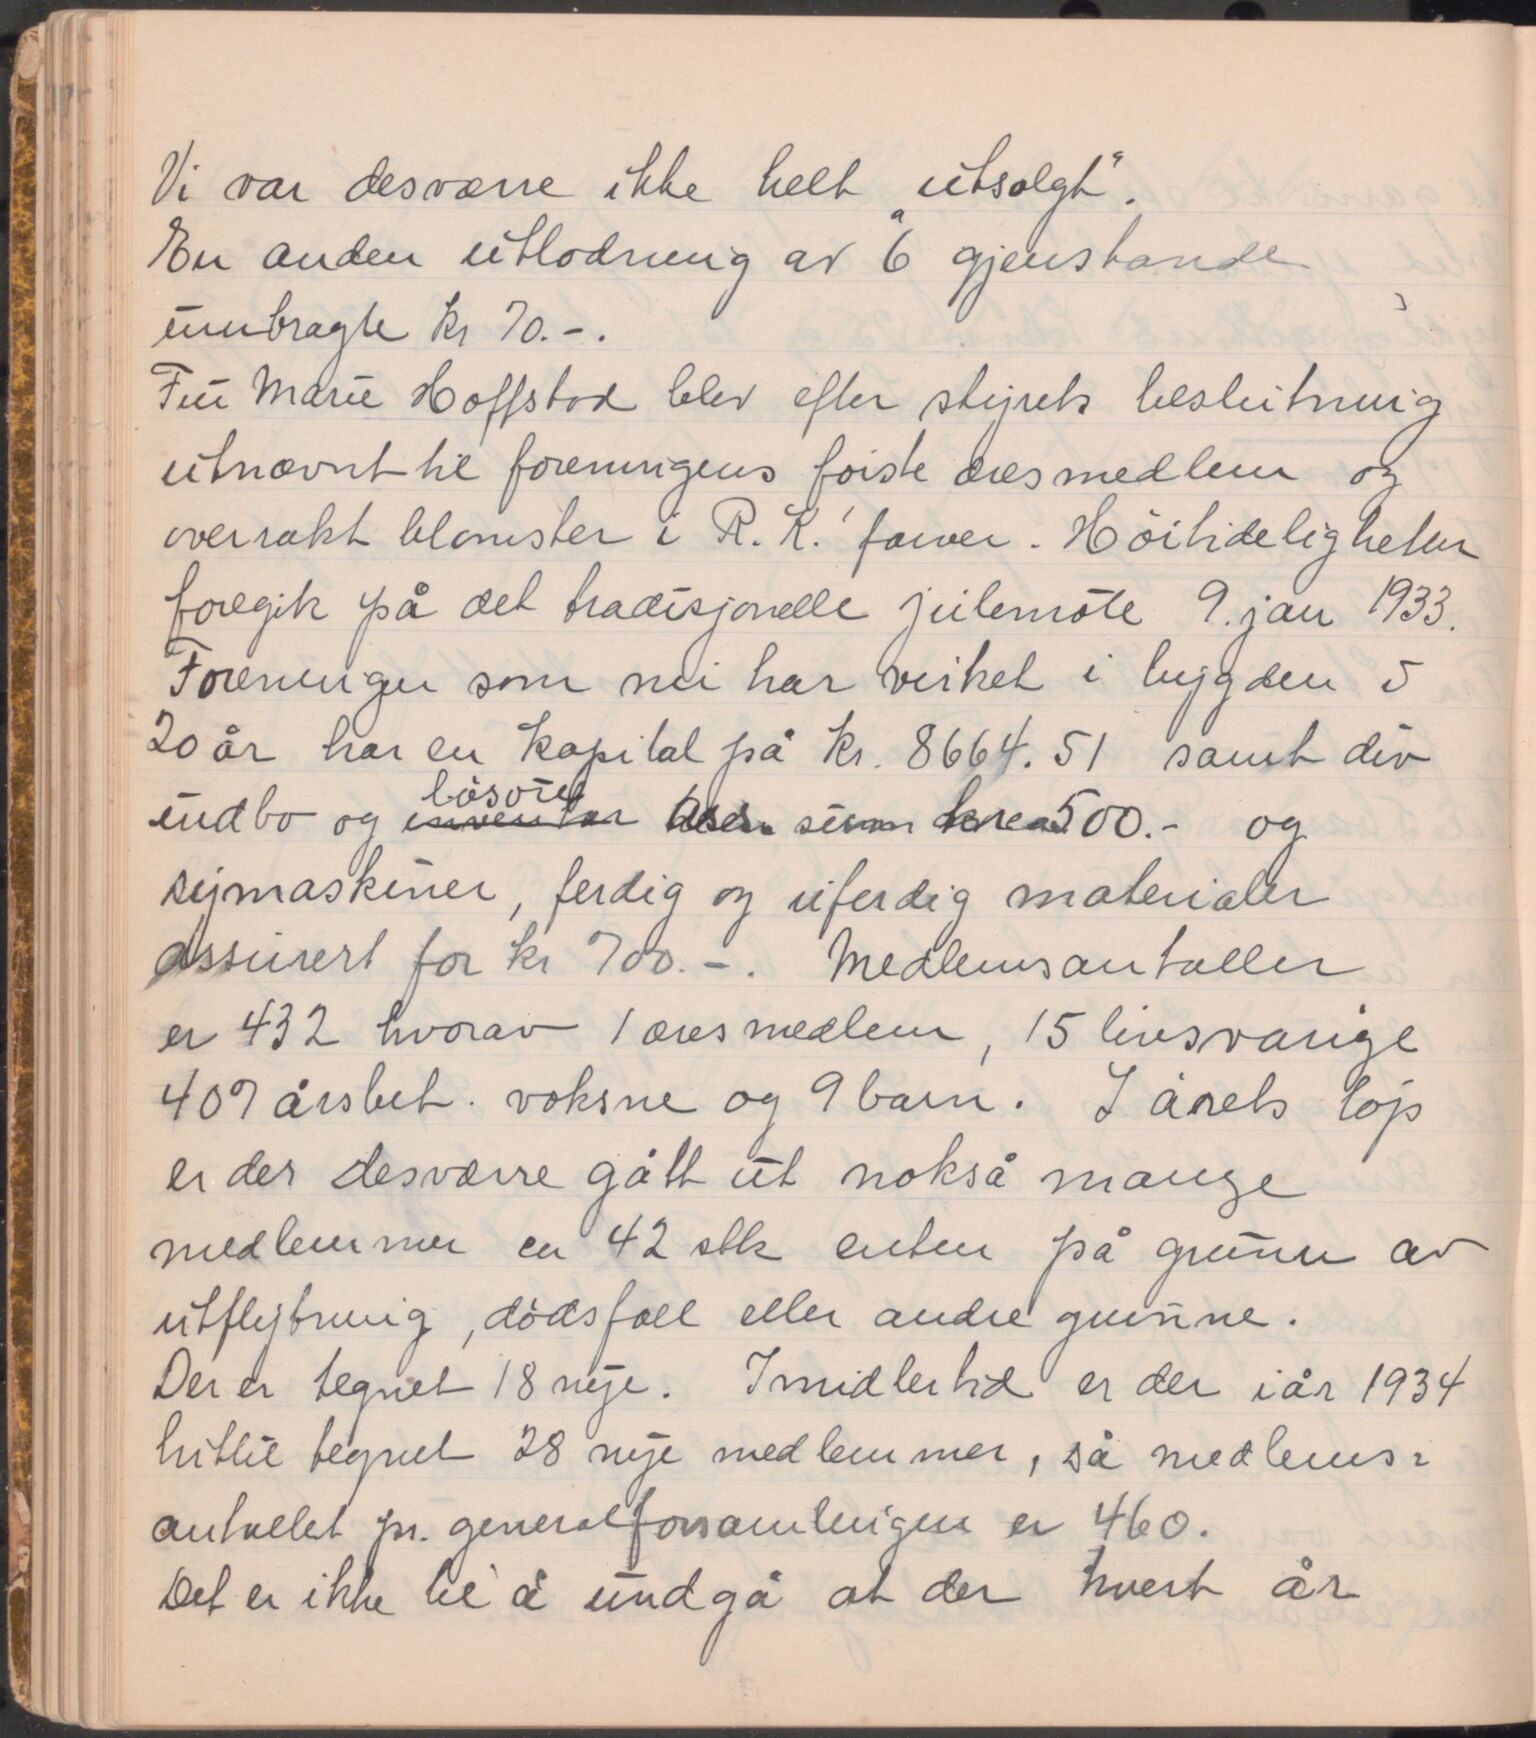 Vi var desværre ikke helt "utsolgt".
En anden utlodning av 6 gjenstande
innbragte kr 70.-.
Fru Marie Hoffstad blev efter styrets beslutning
utnævnt til foreningens første æresmedlem og
overrakt blomster i R.K.' farver. Høitideligheten
foregik på det tradisjonelle julemøte 9. jan 1933.
Foreningen som nu har virket i bygden i
20 år har en kapital på kr. 8664.51 samt div
indbo og løsøre 500.- og
symaskiner, ferdig og uferdig materialer
assurert for kr 700.-. Medlemsantallet
er 432 hvorav 1 æresmedlem, 15 livsvarige
407 årsbet. voksne og 9 barn. I årets løp
er der desværre gått ut nokså mange
medlemmer ca 42 stk enten på grunn av
utflytning, dødsfall eller andre grunne.
Der er tegnet 18 nye. Imidlertid er der iår 1934
hittil tegnet 28 nye medlemmer, så medlems=
antallet pr. generalforsamlingen er 460.
Det er ikke til å undgå at der hvert år